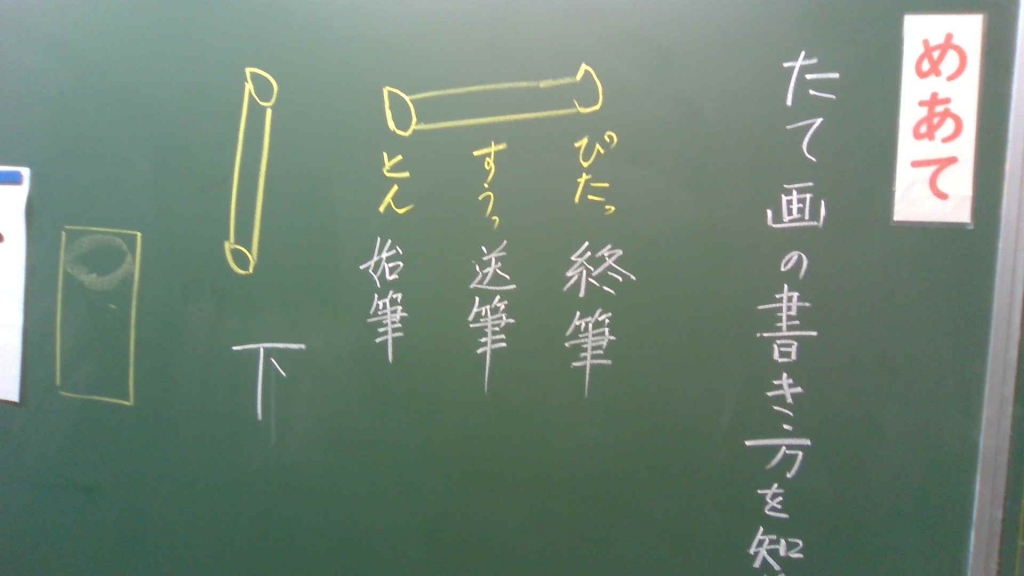 めあて
たて画の書き方を知
ぴたっ
終筆
すうっ
送筆
とん
始筆
下